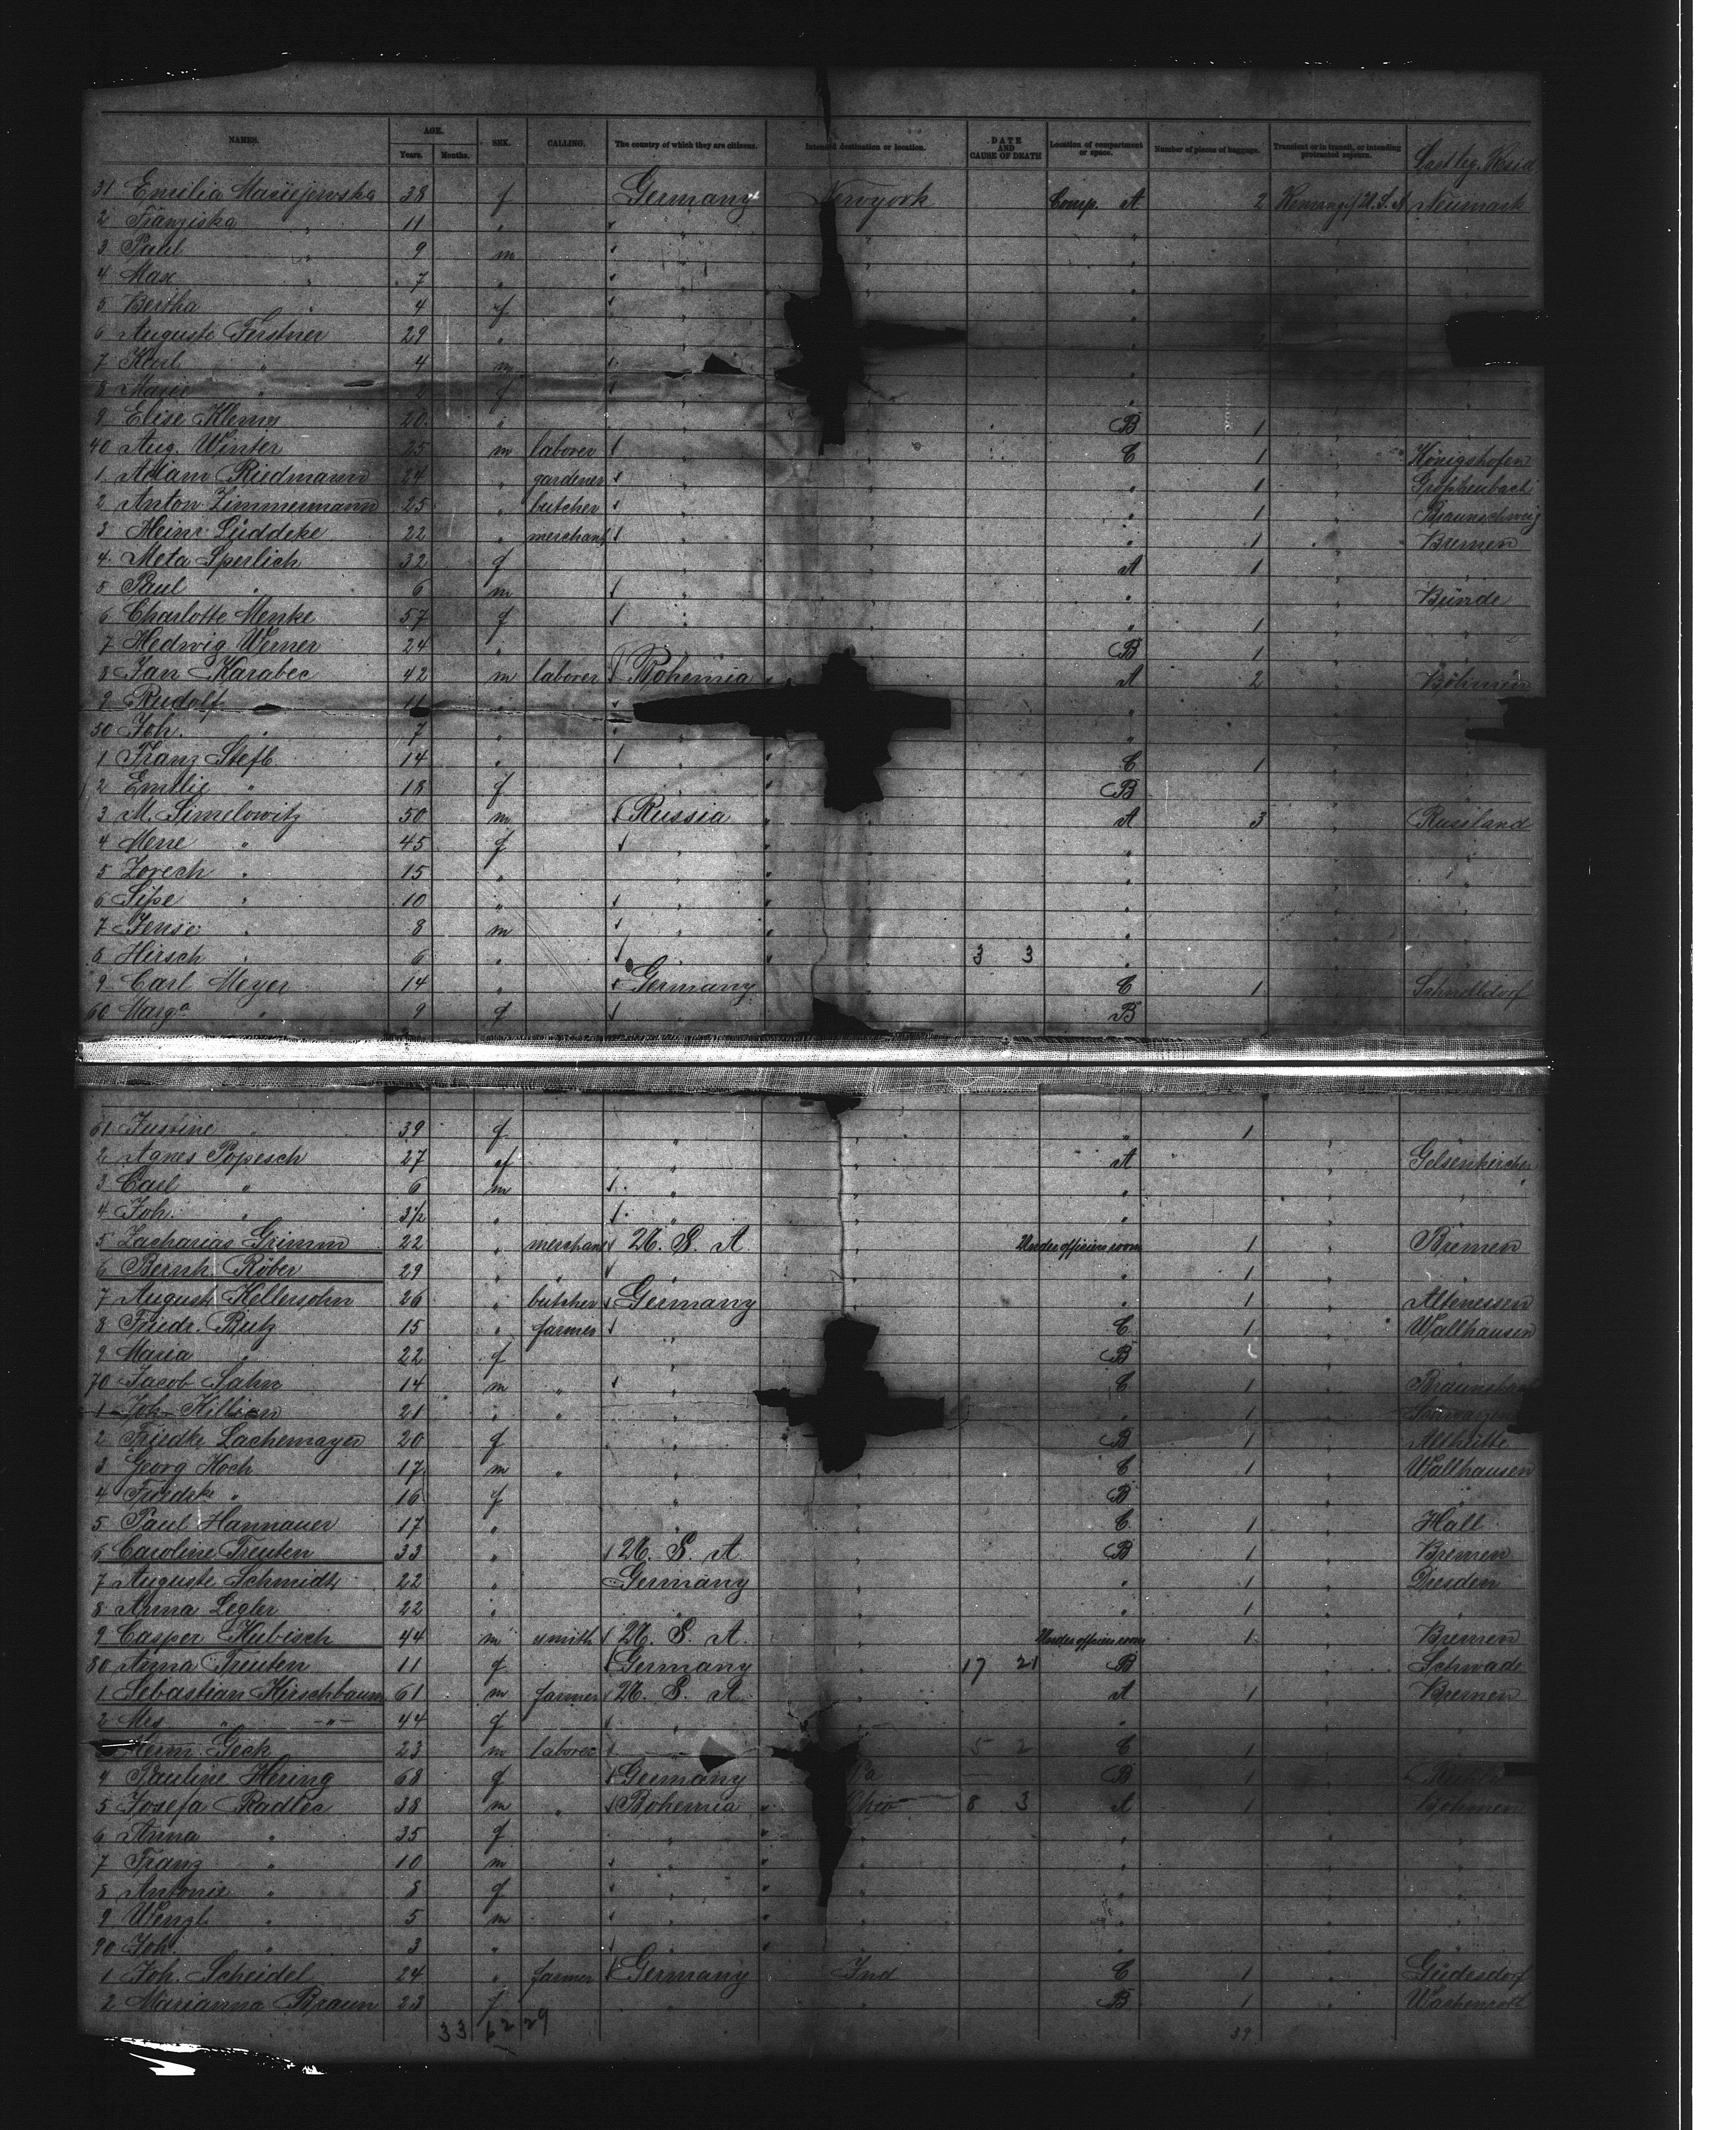 NAMES. AGE. Years. Months. SEX. CALLING. The country of which they are citizens. Intended destination or location. DATE AND CAUSE OF DEATH Location of compartment or space. Number of pieces of baggage. Transient or in transit, or intending protracted sojourn. Last leg. Resid
31 Emilia Maciejewska 38 f Germany Newyork Comp. A 2 U.S.A Neumark
2 Franziska " 11 "
3 Paul " 9 m
4 Max " 7 "
5 Bertha 4 f
6 Auguste Ferstner 29 "
7 Karl " 4 m
8 Marie " 2 f
9 Elise Klemz 20 " B 1
40 Aug. Winter 25 m laborer C 1 Königshofen
1 Adam Riedmann 24 " gardener " 1
2 Anton Zimmermann 25 " butcher " 1 Braunschweig
3 Heinr Lüddeke 22 " merchant " 1 Bremen
4 Meta Sperlich 32 f A 1 "
5 Paul " 6 m " Bünde
6 Charlotte Menke 57 f " 1 "
7 Hedwig Werner 24 " B 1 "
8 Jan Karabec 42 m laborer Bohemia A 2 Böhmen
9 Rudolf 11 "
50 Joh. " 7 "
1 Franz Stefl 14 " C 1
2 Emilie " 18 f B
3 M. Simelowitz 50 m Russia A 3 Russland
4 Mene " 45 f "
5 Zorech " 15 "
6 " 10 "
7 " 8 m
8 Hirsch " 6 " 3 3
9 Carl Meyer 14 " Germany C 1
60 Marga " 9 f B
61 Justine " 39 f " 1
2 Agnes Popesch 27 f A Gelsenkirchen
3 Carl " 6 m "
4 Joh. " 3½ "
5 Zacharias Grimm 22 " merchant U. S. A Under officiers room 1 Bremen
6 Bernh. Röber 29 " " " 1 "
7 August Kellersohn 26 " butcher Germany " 1 Altenessen
8 Friedr. Butz 15 " farmer C 1 Wallhausen
9 Maria " 22 f B
70 Jacob Sahn 14 m " C 1
1 Joh. Killian 21 " " " 1
2 Friedke Lachemayer 20 f B 1 Althütte
3 Georg Koch 17 m " C 1 Wallhausen
4 Friedke " 16 f B "
5 Paul Hannauer 17 " C 1 Hall
6 Caroline Treuten 33 " U. S. A. B 1 Bremen
7 Auguste Schmidt 22 " Germany " 1 Dresden
8 Anna Legler 22 " " " 1 "
9 Casper Kubisch 44 m smith U. S. A. Under officiers room 1 Bremen
80 Anna Treuten 11 f Germany 17 21 B
1 Sebastian Kirschbaum 61 m farmer U. S. A. A 1 Bremen
2 Mrs " 44 f " "
3 Heinr. Geck 23 m laborer " 5 2 C 1
4 Pauline Hering 68 f Germany Pa B 1
5 Josefa Radlec 38 m " Bohemia Ohio 8 3 A 1 Böhmen
6 Anna " 35 f "
7 Franz " 10 m "
8 Antonie " 8 f "
9 Wenzl " 5 m "
90 Joh. " 3 " "
1 Joh. Scheidel 24 " farmer Germany Ind C 1
2 Marianna Braun 23 f " " B 1 Wachenroth
33 62 29 39